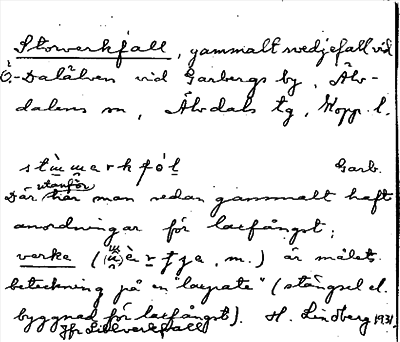 Storverkfall, gammalt svedjefall vid
Ö.-Dalälven vid Garbergs by, Älv-
dalens sn, Älvdals tg, Kopp. l.
Garb.
Där utanför har man sedan gammalt haft
anordningar för laxfångst;
verke (, m.) är målets
beteckning på en "laxpate" (stängsel el.
byggnad för laxfångst). H. Lindberg 1931.
Jfr Lillverkfall